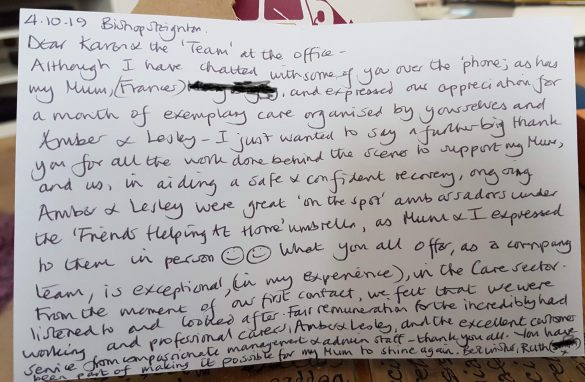 4.10.19 Bishopsteignton.
Dear Karon & the 'Team' at the office -
Although I have chatted with some of you over the 'phone; as has
my Mum, (Frances), and expressed our appreciation for
a month of exemplary care organised by yourselves and
Amber & Lesley - I just wanted to say a further big thank
you for all the work done behind the scenes to support my Mum,
and us, in aiding a safe & confident recovery, ongoing
Amber & Lesley were great 'on the spot' ambassadors under
the 'Friends Helping At Home' umbrella, as Mum & I expressed
to them in person ☺☺ What you all offer, as a company
team, is exceptional, (in my experience), in the Care sector.
From the moment of our first contact, we felt that we were
listened to and looked after. Fair remuneration for the incredibly hard
working and professional carers, Amber & Lesley, and the excellent customer
service from compassionate management & admin staff - thank you all. You have
been part of making it possible for my Mum to shine again. Best wishes, Ruth